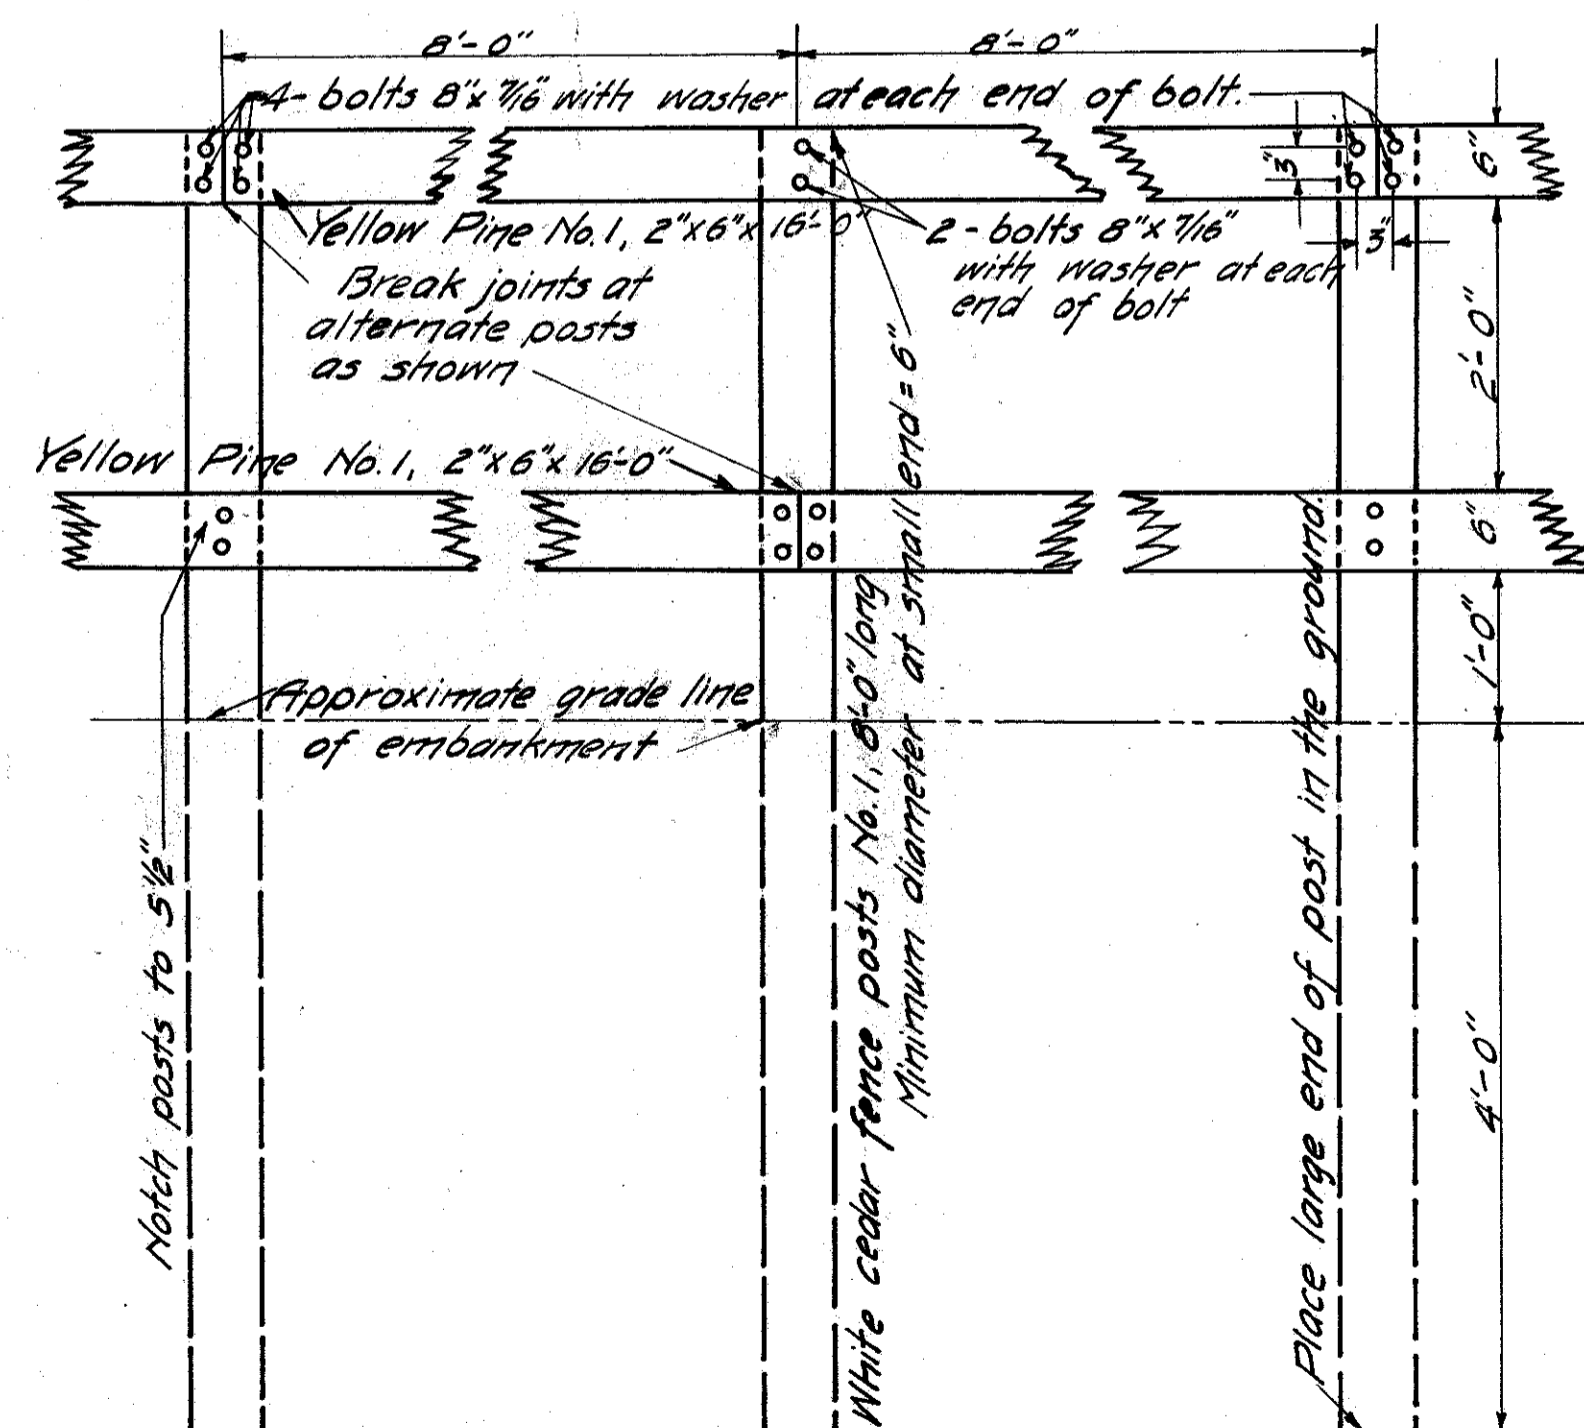 8'-0" 8'-0"
4-bolts 8"x 7/16" with washer at each end of bolt.
3"
6"
Yellow Pine No.1, 2"x6"x 16'-0"
2-bolts 8"x 7/16"
with washer at each
end of bolt
3"
Break joints at
alternate posts
as shown
2'-0"
Yellow Pine No.1, 2"x6"x 16'-0"
6"
1'-0"
Approximate grade line
of embankment
Notch posts to 5½"
White cedar fence posts No.1, 8'-0" long
Minimum diameter at small end = 6"
Place large end of post in the ground.
4'-0"